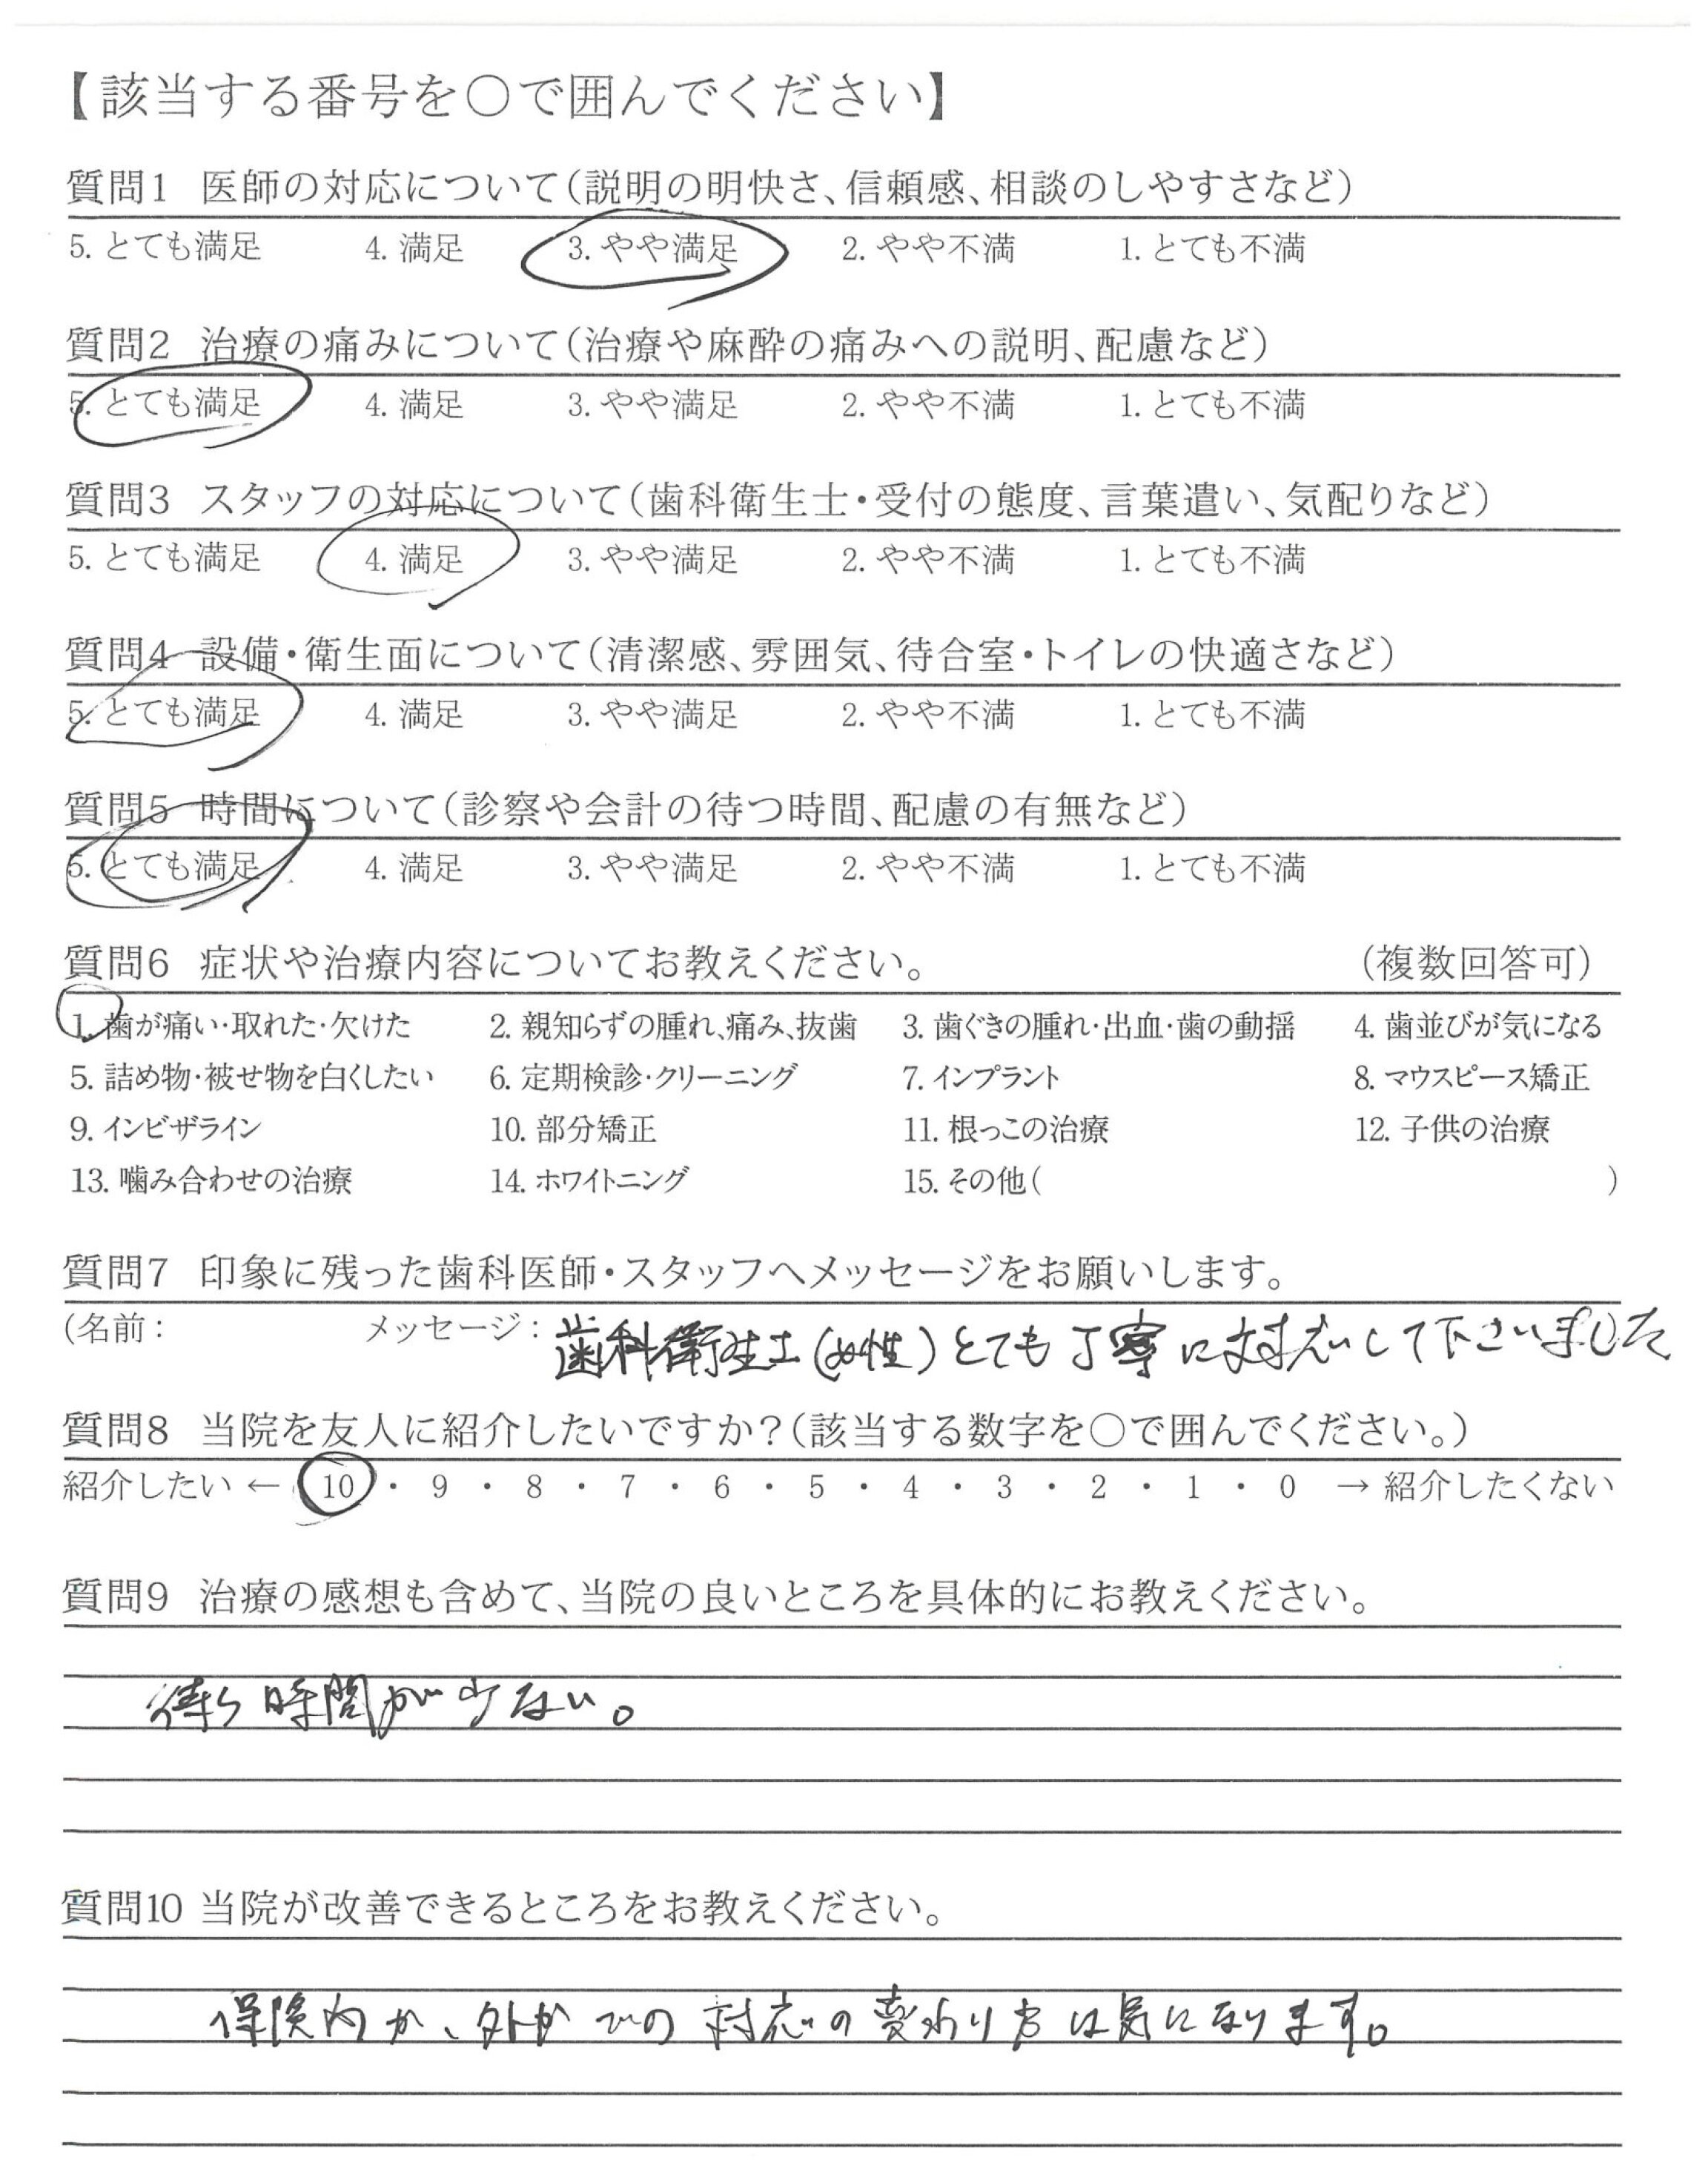 【該当する番号を○で囲んでください】
質問1 医師の対応について(説明の明快さ、信頼感、相談のしやすさなど)
5. とても満足 4. 満足 3. やや満足 2. やや不満 1. とても不満
質問2 治療の痛みについて(治療や麻酔の痛みへの説明、配慮など)
5. とても満足 4. 満足 3. やや満足 2. やや不満 1. とても不満
質問3 スタッフの対応について(歯科衛生士・受付の態度、言葉遣い、気配りなど)
5. とても満足 4. 満足 3. やや満足 2. やや不満 1. とても不満
質問4 設備・衛生面について(清潔感、雰囲気、待合室・トイレの快適さなど)
5. とても満足 4. 満足 3. やや満足 2. やや不満 1. とても不満
質問5 時間について(診察や会計の待つ時間、配慮の有無など)
5. とても満足 4. 満足 3. やや満足 2. やや不満 1. とても不満
質問6 症状や治療内容についてお教えください。 (複数回答可)
1. 歯が痛い・取れた・欠けた 2. 親知らずの腫れ、痛み、抜歯 3. 歯ぐきの腫れ・出血・歯の動揺 4. 歯並びが気になる
5. 詰め物・被せ物を白くしたい 6. 定期検診・クリーニング 7. インプラント 8. マウスピース矯正
9. インビザライン 10. 部分矯正 11. 根っこの治療 12. 子供の治療
13. 噛み合わせの治療 14. ホワイトニング 15. その他( )
質問7 印象に残った歯科医師・スタッフへメッセージをお願いします。
(名前: メッセージ: 歯科衛生士(女性)とても丁寧に対応して下さいました
質問8 当院を友人に紹介したいですか?(該当する数字を○で囲んでください。)
紹介したい ← 10 ・ 9 ・ 8 ・ 7 ・ 6 ・ 5 ・ 4 ・ 3 ・ 2 ・ 1 ・ 0 → 紹介したくない
質問9 治療の感想も含めて、当院の良いところを具体的にお教えください。
待ち時間が少ない。
質問10 当院が改善できるところをお教えください。
保険内か、外かでの対応の変わり方は気になります。